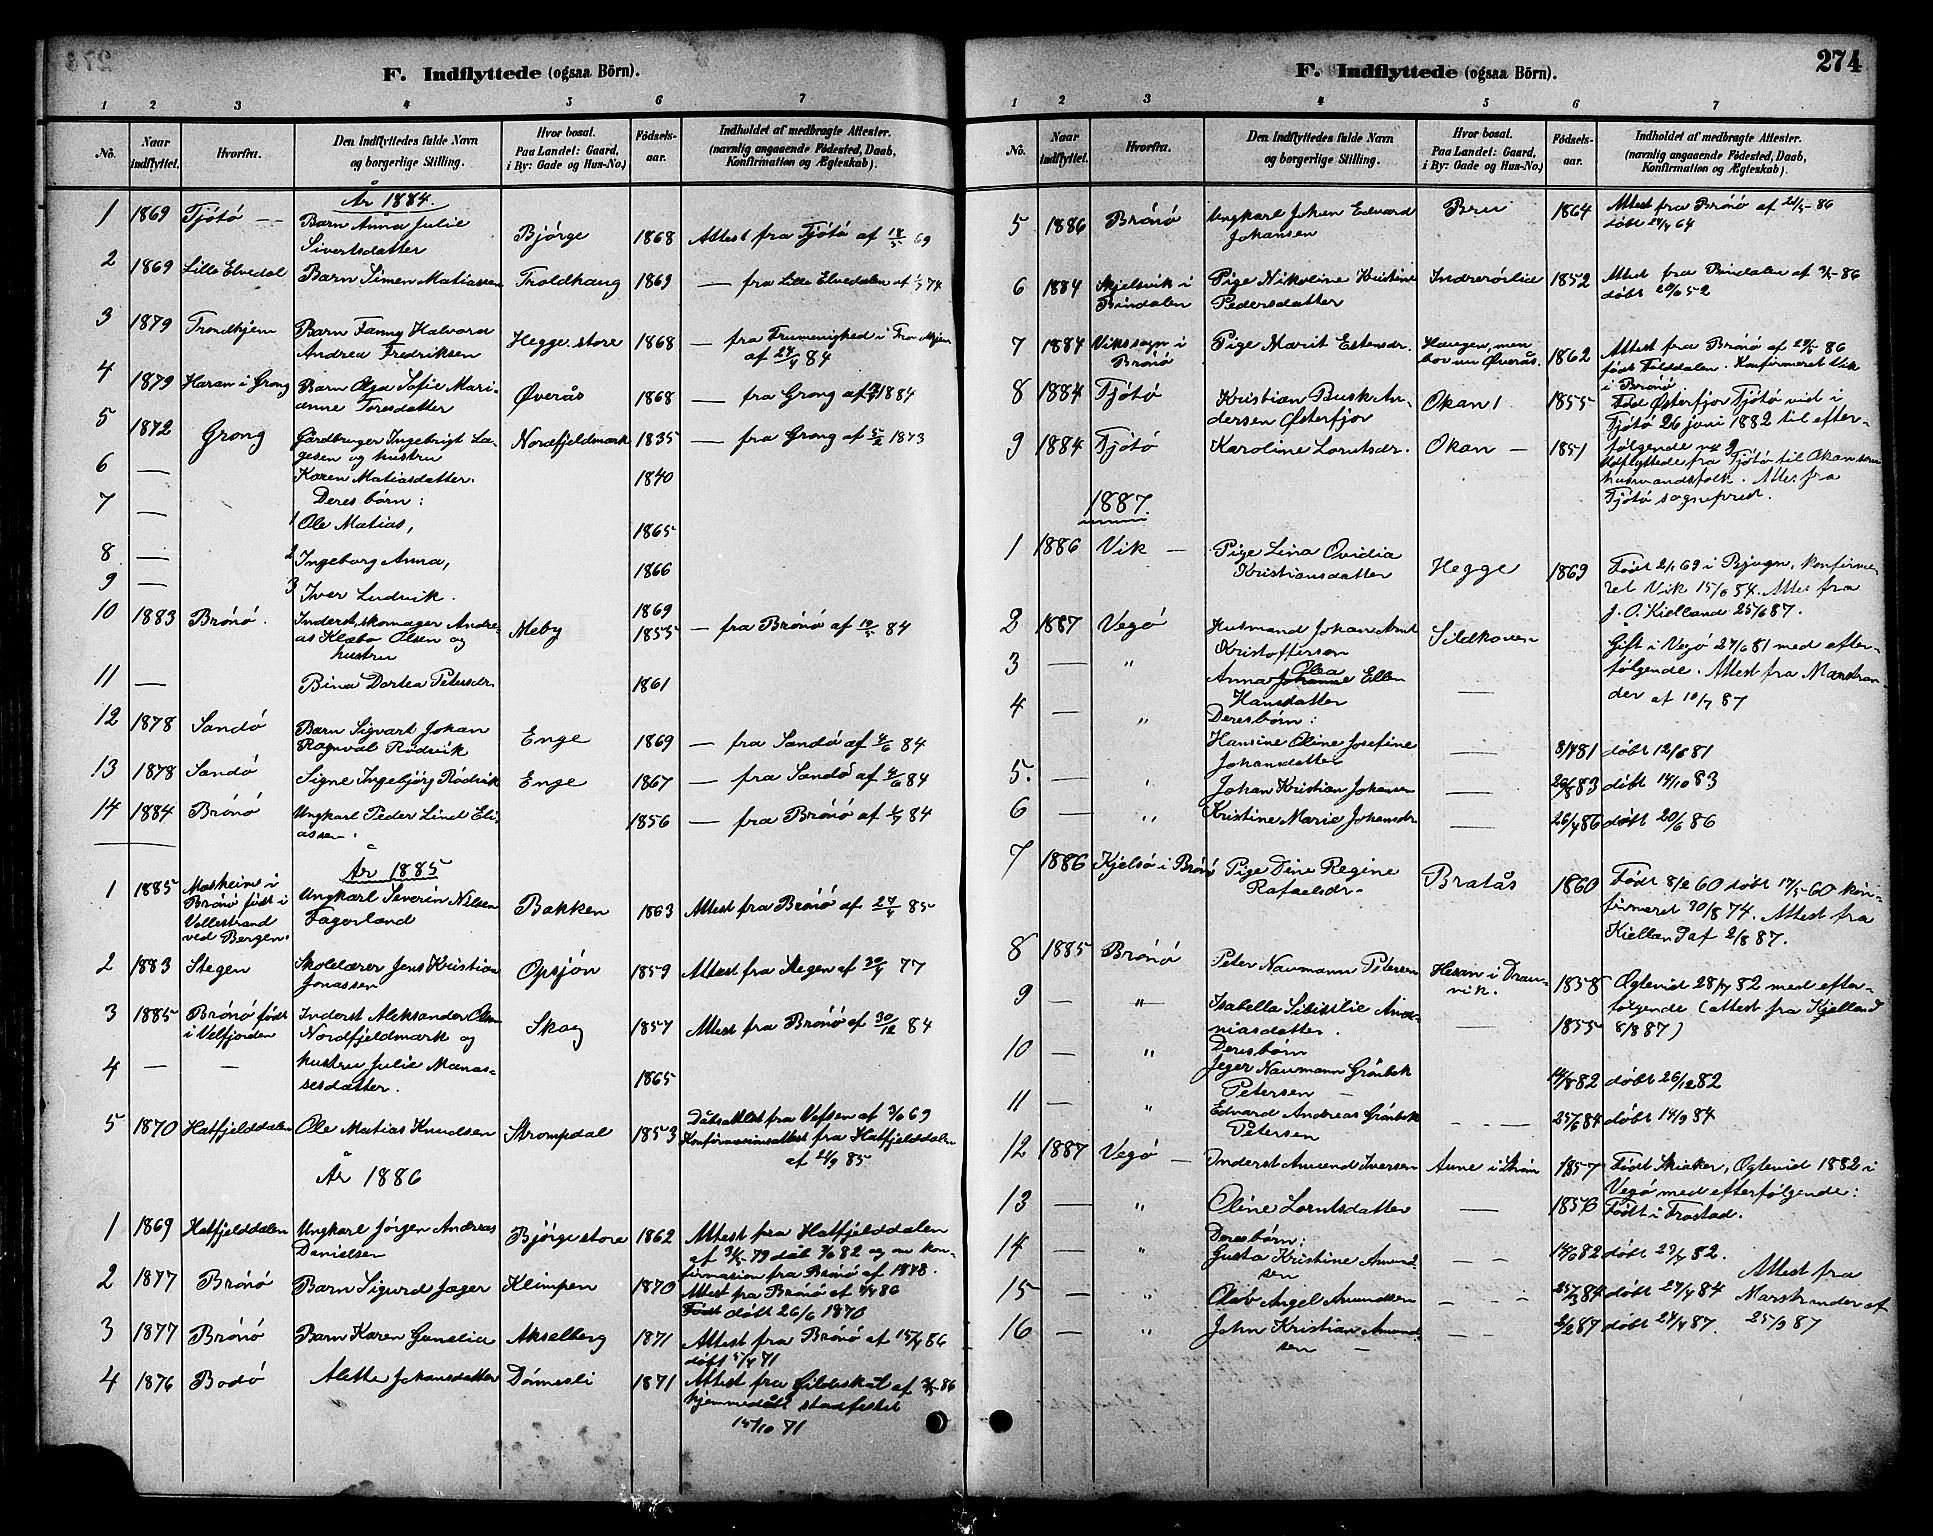 F. Indflyttede (ogsaa Börn).
1 2 3 4 5 6 7
No. Naar indflyttet. Hvorfra. Den Indflyttedes fulde Navn og borgerlige Stilling. Hvor bosat. Paa Landet: Gaard, i By: Gade og Hus-No.) Födsels-aar. Indholdet af medbragte Attester. (navnlig angaaende Födested, Daab, Konfirmation og Ægteskab).
År 1884.
1 1869 Tjötö — Barn Anna Julie
Sivertsdatter Bjørge 1868 Attest fra Tjötö af 18/5 69
2 1869 Lille Elvedal Barn Simen Matiassen Troldhaug 1869 — fra Lille Elvedalen af 1/7 74
3 1879 Trondhjem Barn Fanny Halvara
Andrea Fredriksen Hegge store 1868 — fra Frumenighed i Trondhjem
af 24/4 84
4 1879 Haran i Grong Barn Olga Sofie Mari-
anne Toresdatter Øverås 1868 — fra Grong af 1884
5 1872 Grong Gårdbruger Ingebrigt La-
gesen og hustru Nordfjeldmark 1835 — fra Grong af 5/2 1873
6 — Karen Matiasdatter. 1840
Deres börn:
7 — 1 Ole Matias, 1865
8 — 2 Ingeborg Anna, 1866
9 — 3 Iver Ludvik. 1869
10 1883 Brönö. Inderst, skomager Andre-
as Klæbo Olsen og Meby 1855 — fra Brönö af 10/5 84
hustru
11 — Bina Dortea Petersdr. 1861
12 1878 Sandö Barn Sigvart Johan
Ragnval Rödvik Enge 1869 — fra Sandö af 4/6 84
13 1878 Sandö Signe Ingebjörg Rödvik Enge 1867 — fra Sandö af 4/6 84
14 1884 Brönö Ungkarl Peder Lind Eli-
assen. 1856 — fra Brönö af 84
År 1885
1 1885 Mosheim i
Brönö født i
Vollestrand
ved Bergen. Ungkarl Severin Nilsen
Fagerland Bakken 1863 Attest fra Brönö af 27/4 85
2 1883 Stegen Skolelærer Jens Kristian
Jonassen Opsjön 1859 Attest fra Stegen af 30/4 77
3 1885 Brönö født
i Velfjorden Inderst Aleksander Olsen
Nordfjeldmark og Skog 1857 Attest fra Brönö af 30/12 84
4 — — hustru Julie Manas-
sesdatter. 1865
5 1870 Hatfjelddalen Ole Matias Knudsen Strompdal 1853 Dåbsattest fra Vefsen af 69
Konfirmasionsattest fra Hatfjelddalen
af 85
År 1886
1 1869 Hatfjelddalen Ungkarl Jörgen Andreas
Danielsen Bjørge store 1862 Attest fra Hatfjelddalen
af 79 döbt 82 og om kon-
firmasion fra Brönö af 1878.
2 1877 Brönö Barn Sigurd Jager Klimpen 1870 Attest fra Brönö af 86
Født döbt 26/6 1870
3 1877 Brönö Barn Karen Gunelia Akselberg 1871 Attest fra Brönö af 15/4 86
döbt 5/4 71
4 1876 Bodö Alette Johansdatter Dönnesli 1871 Attest fra Gildeskål af 86
hjemmedåb stadfestet
15/10 71
274
F. Indflyttede (ogsaa Börn).
1 2 3 4 5 6 7
No. Naar indflyttet. Hvorfra. Den Indflyttedes fulde Navn og borgerlige Stilling. Hvor bosat. Paa Landet: Gaard, i By: Gade og Hus-No.) Födsels-aar. Indholdet af medbragte Attester. (navnlig angaaende Födested, Daab, Konfirmation og Ægteskab).
5 1886 Brönö Ungkarl Johan Edvard
Johansen Bru 1864 Attest fra Brönö af 86
döbt 24/4 64
6 1884 Skjelsvik i
Bindalen Pige Nikoline Kristine
Pedersdatter Indrerörlia 1852 Attest fra Bindalen af 86
döbt 20/6 52
7 1884 Vikssogn i
Brönö Pige Marit Estensdr. Haugen, men
bor nu Øverås. 1862 Attest fra Brönö af 86
født Folddalen. Konfirmeret Vik
i Brönö
8 1884 Tjötö Kristian Busk An-
dersen Østerfjor Okan 1 1855 Fød Østerfjor Tjötö vid i
Tjötö 26 juni 1882 til efter-
følgende nr 9
9 1884 Tjötö Karoline Lorntsdr. Okan — 1851 Udflyttede fra Tjötö til Okan som
husmandsfolk. Attest fra
Tjötö sogneprest.
1887.
1 1886 Vik — Pige Lina Ovidia
Kristiansdatter Hegge 1869 Født 2/1 69 i Bjugn, konfirme-
ret Vik 15/6 84. Attest fra
J. O. Kielland 25/6 87.
2 1887 Vegö Husmand Johan Arnt
Kristofferson Sildhaven Gift i Vegö 27/6 81 med efter-
følgende. Attest fra Marstran-
der af 10/7 87
3 — " Anna Johanne Olea Ellen
Hansdatter —
4 — " Deresbörn:
Hansine Oline Josefine
Johansdatter — 8/4 81 döbt 12/6 81
5. — " Johan Kristian Johansen — 26/8 83 döbt 14/10 83
6 — " Kristine Marie Johansdr — 26/4 86 döbt 20/6 86
7 1886 Kjelsö i Brönö Pige Dine Regine
Rafaelsdr. Bratås 1860 Født 8/2 60 döbt 17/5 60 kon-
firmeret 30/8 74. Attest fra
Kielland af 2/8 87.
8 1885 Brönö Peter Naumann Petersen Heran i Drau-
vik. 1858 Ægtevid 28/4 82 med efter-
følgende (attest fra Kjelland
8/8 87)
9 — " Isabella Ana-
niasdatter. — 1855
10 — " Deresbörn
Jeger Naumann Grönbek
Petersen — 14/8 82 döbt 26/12 82
11 — " Edvard Andreas Grönbek
Petersen — 25/6 84 döbt 14/9 84
12 1887 Vegö — Inderst Amund Iversen Aune i 1857 Født Skiaker, Ægtevid 1882 i
Vegö med efterfølgende:
13 " Oline Lorntsdatter — 1853 Født i Frostad.
14 — " Deresbörn:
Gusta Kristine Amund-
sen — 14/6 82 döbt 82.
15 — " Olav Angel Amundsen — 25/3 84 döbt 27/4 84
16 — " John Kristian Amund-
sen — 2/2 87 döbt 24/4 87.
Attest fra
Marstrander af
25/9 87